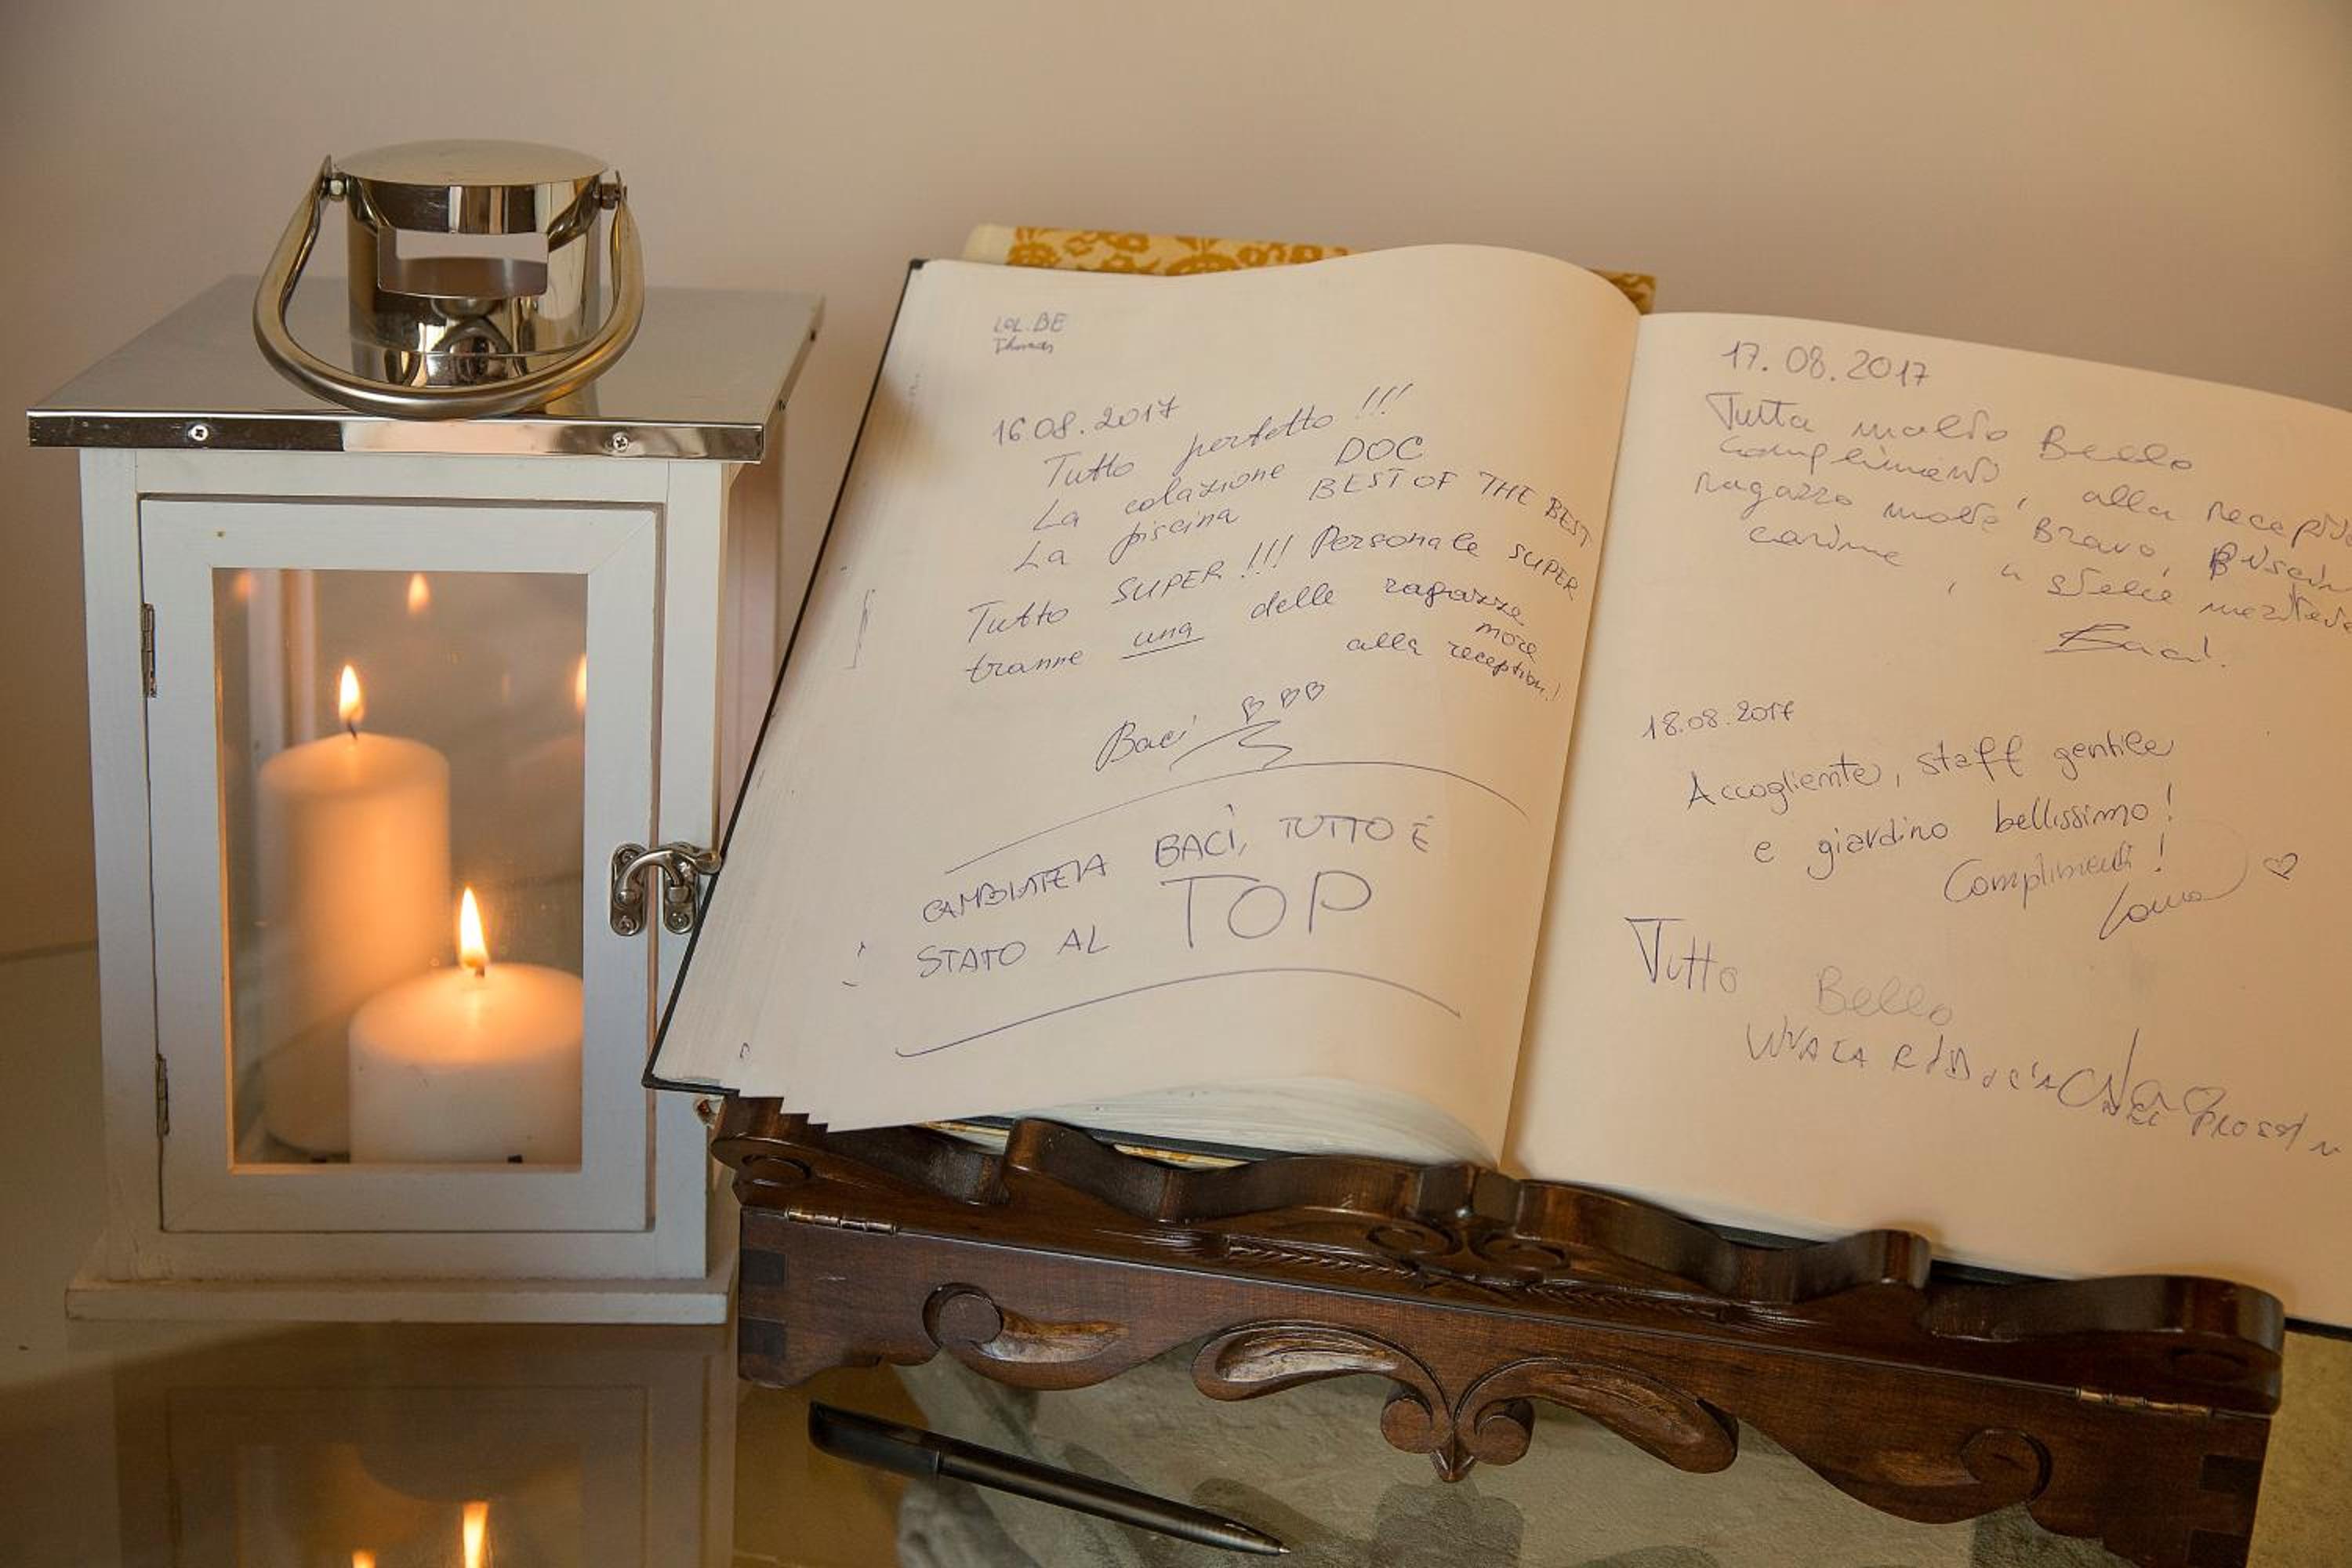 LOL.BE
Thomas
16.08.2017
Tutto perfetto !!!
La colazione DOC
La piscina BEST OF THE BEST
Tutto SUPER !!! Personale SUPER
tranne una delle ragazze
more
alla reception!
Baci
BACI, TUTTO È
STATO AL TOP
17.08.2017
Tutto molto Bello
complimenti, alla
ragazzo molto Bravo,
carine, 4 stelle
Baci!
18.08.2017
Accogliente, staff gentile
e giardino bellissimo!
Complimenti!
Tutto Bello